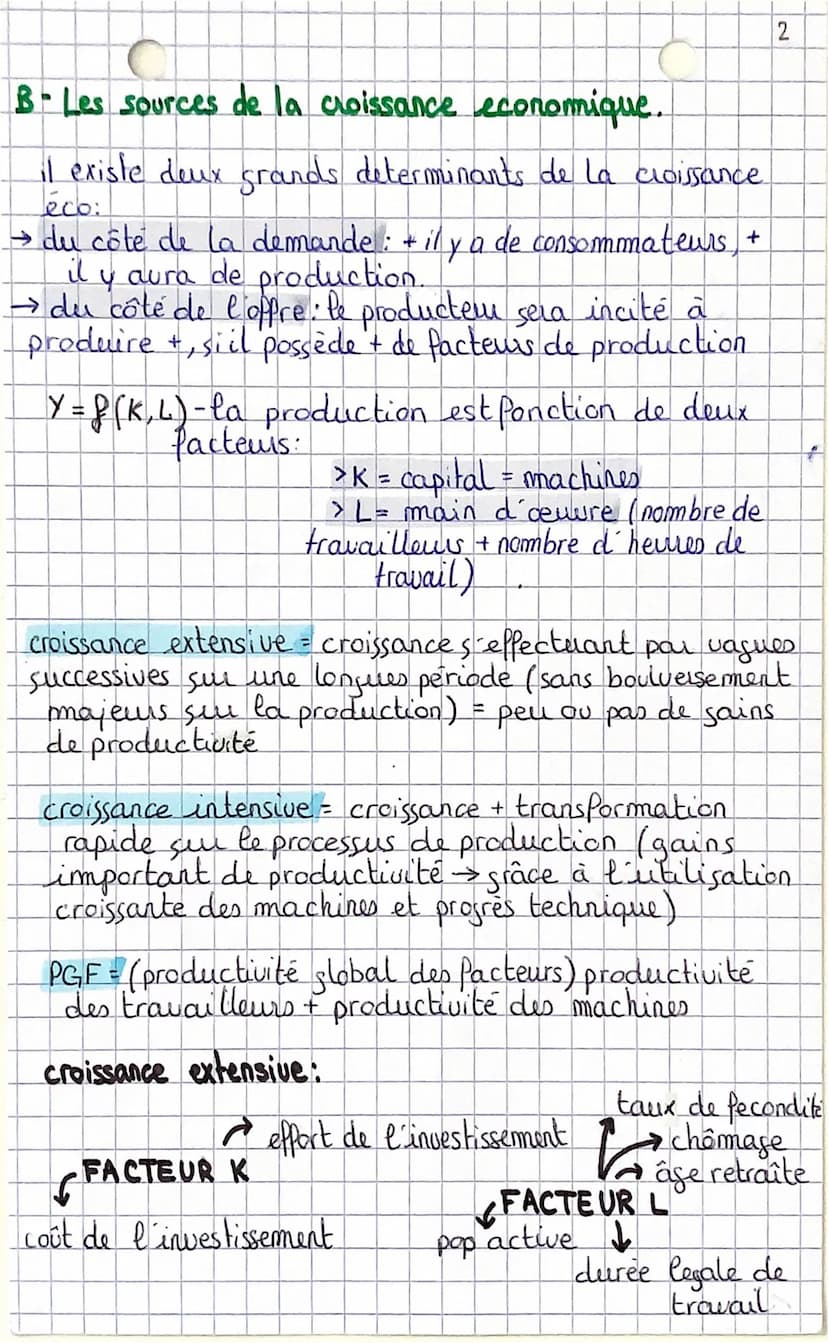 2
B- Les sources de la croissance economique.
il existe deux grands determinants de la croissance
éco:
→ du côté de la demande : + il y a de consommateurs, +
il y aura de production.
→ du côté de l'offre : le producteur sera incité à
produire +, si il possède + de facteurs de production
Y = f(K,L) - la production est fonction de deux
facteurs:
> K = capital = machines
> L = main d'œuvre (nombre de
travailleurs + nombre d'heures de
travail)
croissance extensive = croissance s'effectuant par vagues
successives sur une longues période (sans boulversement
majeurs sur la production) = peu ou pas de gains
de productivité
croissance intensive = croissance + transformation
rapide sur le processus de production (gains
important de productivité → grâce à l'utilisation
croissante des machines et progrès technique)
PGF = (productivité global des facteurs) productivité
des travailleurs + productivité des machines
croissance extensive:
taux de fecondité
effort de l'investissement
chômage
FACTEUR K
âge retraîte
FACTEUR L
coût de l'investissement
pop active
durée legale de
travail